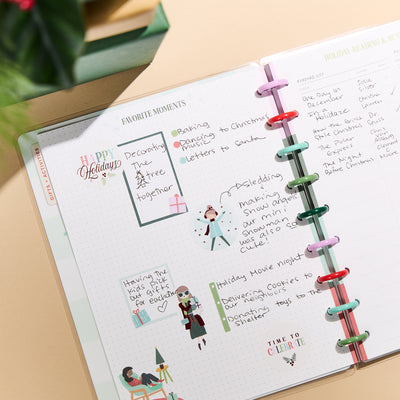 FAVORITE MOMENTS
HAPPY
Holidays
Decorating
The
tree
together
Baking
Dancing to Christmas
music
Letters to Santa
sledding +
making
snow angels
our mini
snowman
was also so
cute!
Having the
kids pick
out gifts
for eachother
Holiday Movie night
Delivering Cookies to
our neighbors
Donating toys to the
Shelter
TIME TO
CELEBRATE
HOLIDAY READING &
One Day in
December
Holidaze
How the Grinch
Stole Christmas
The Night
Before Christmas
Josie
Silver
Dr.
Seuss
Clement
Moore